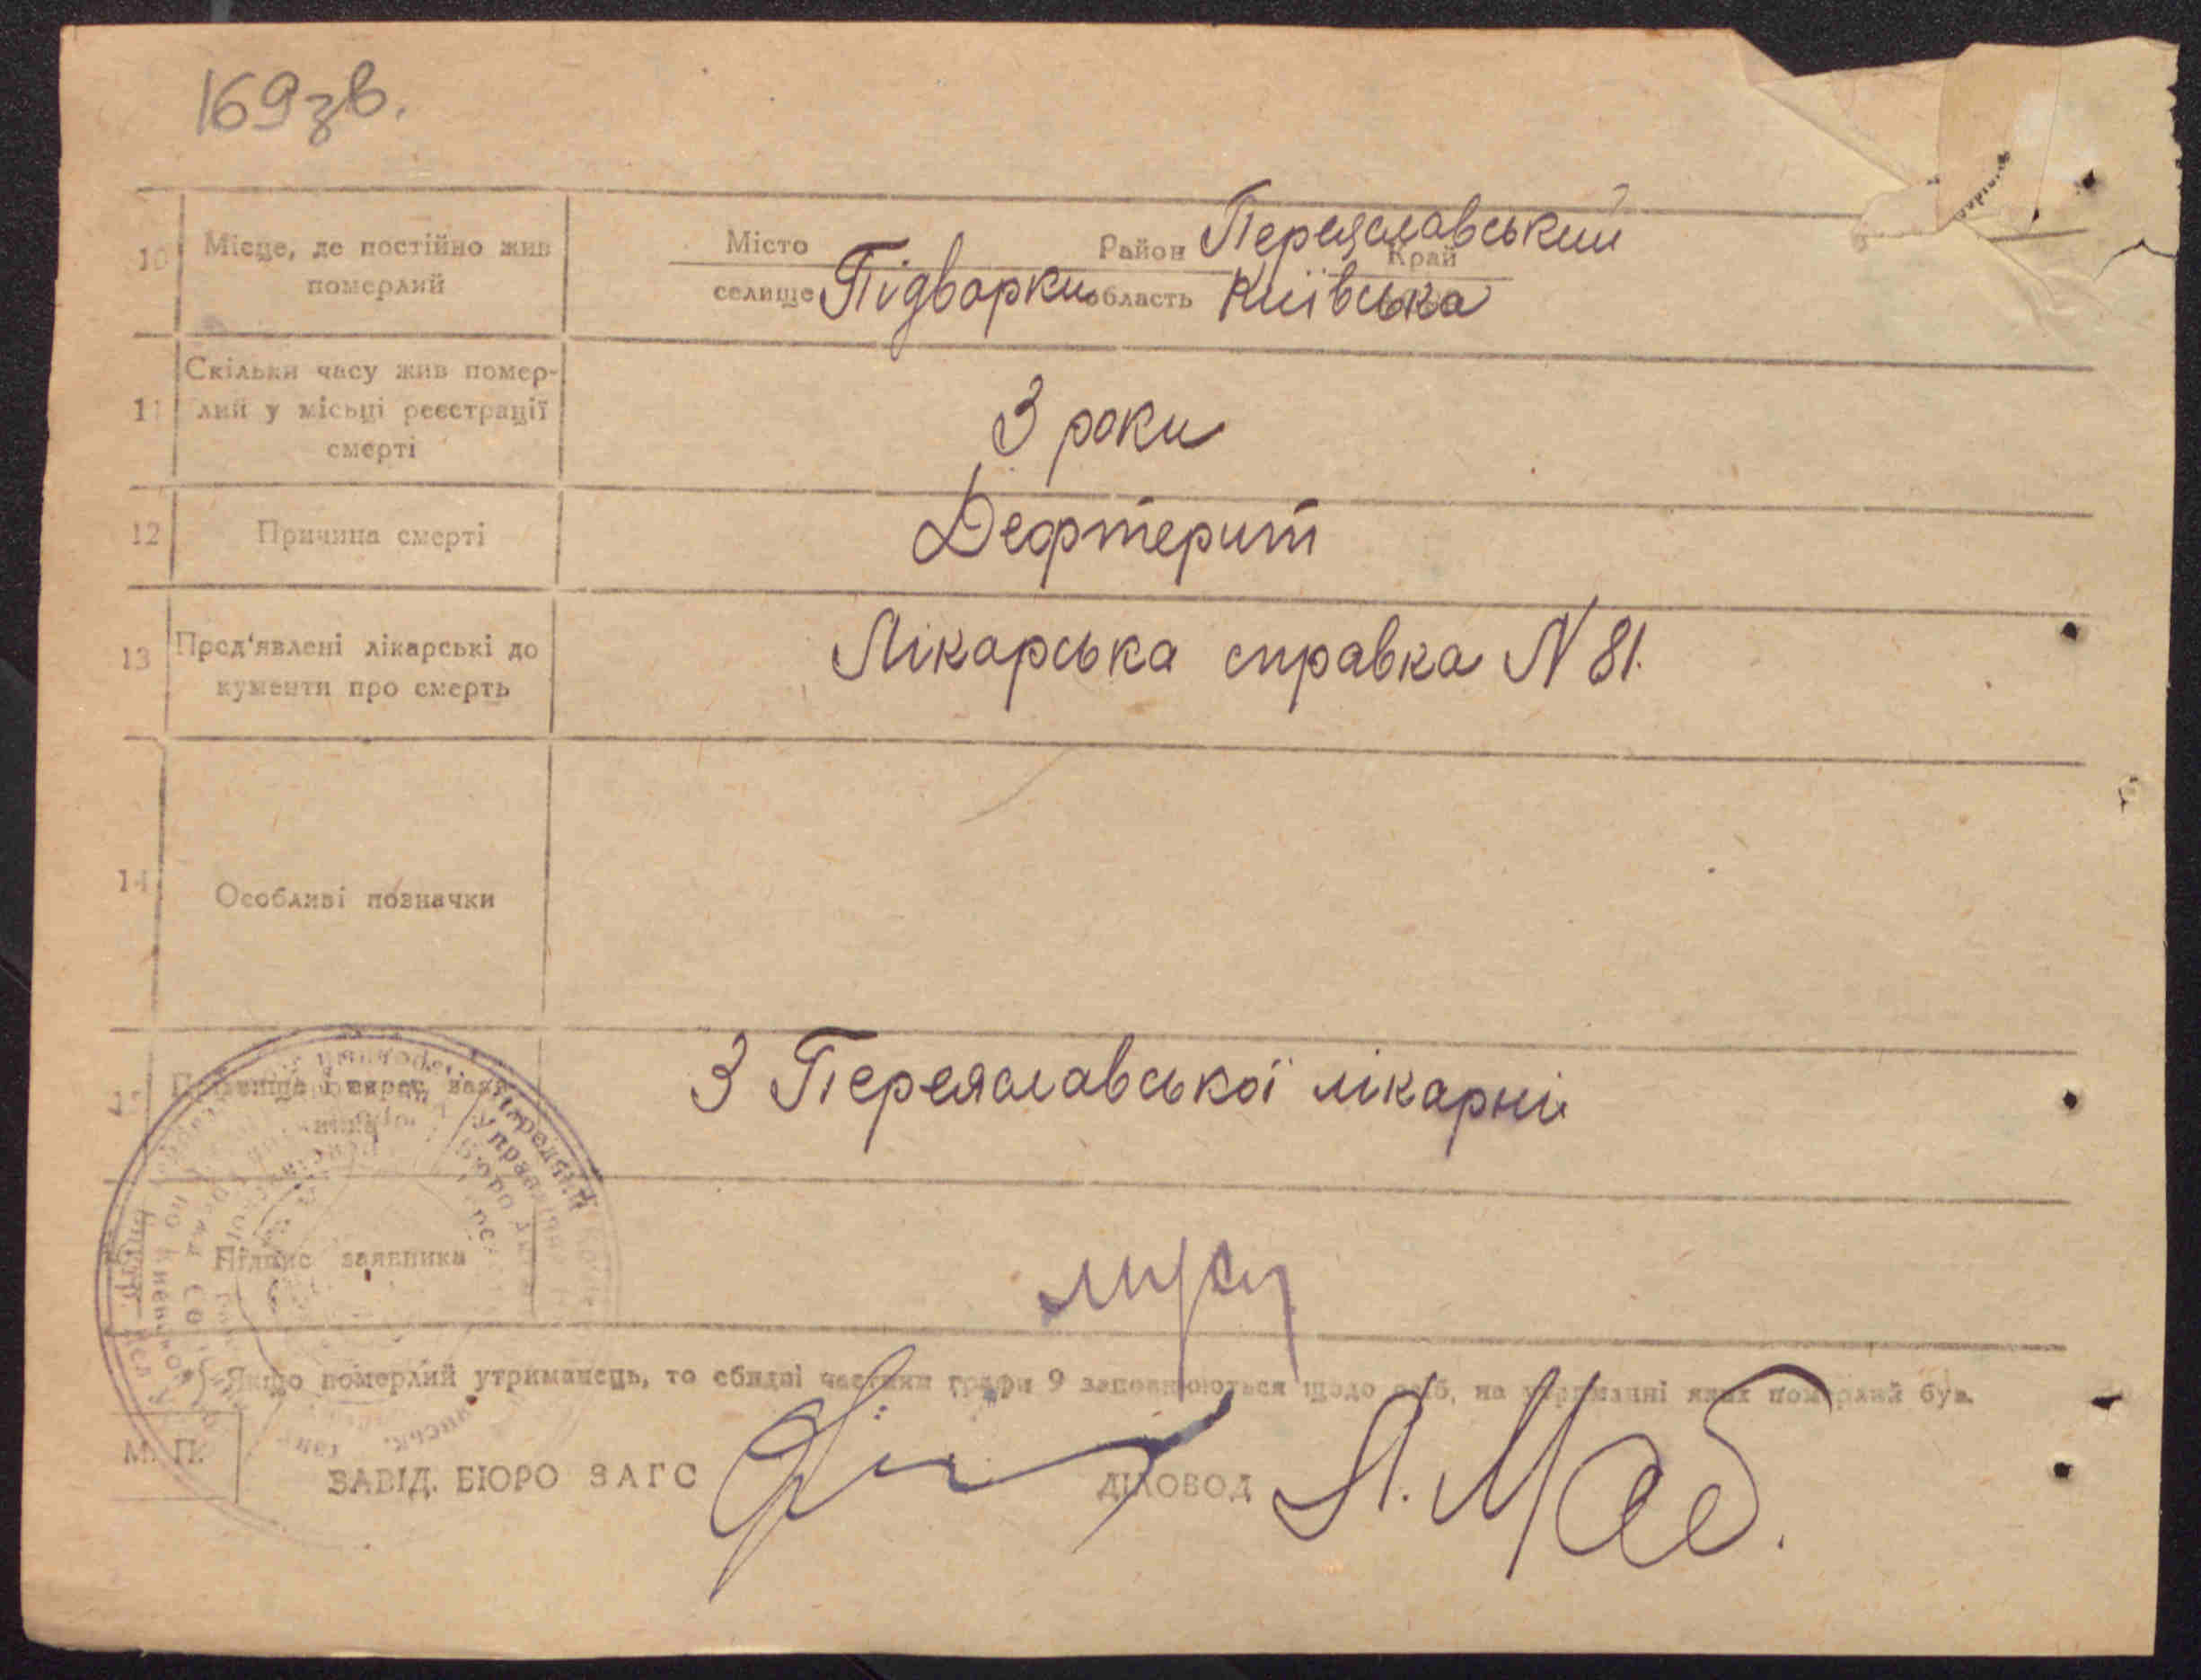 169зв.
10 Місце, де постійно жив
померлий
Місто Район Переяславський Край
селище Підворки область Київська
11 Скільки часу жив помер-
лий у місьці реєстрації
смерті
3 роки
12 Причина смерті
Дефтерит
13 Пред'явлені лікарські до
кументи про смерть
Лікарська справка N 81.
14 Особливі позначки
З Переяславської лікарні
Підпис заявника
Якщо померлий утриманець, то обидві частини графи 9 заповнюються щодо осіб, на утриманні яких померлий був.
М. П.
ЗАВІД. БЮРО ЗАГС
ДІЛОВОД